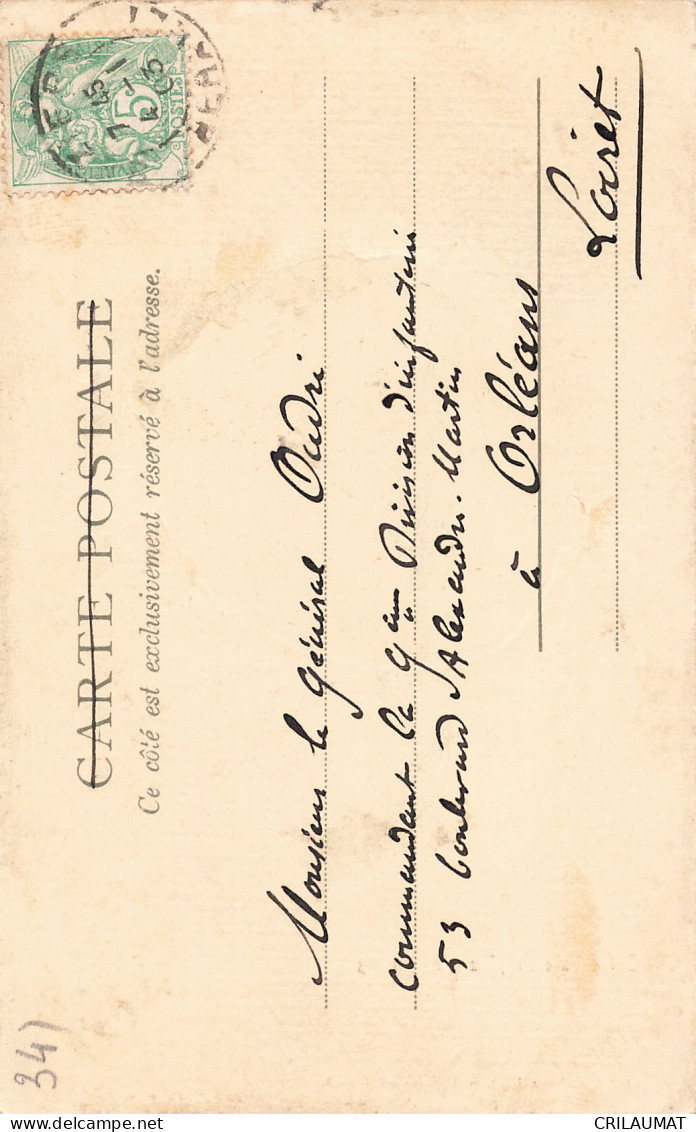 CARTE POSTALE
Ce côté est exclusivement réservé à l'adresse.
Monsieur le général Oudri
Commandant la 9ème Division d'infanterie
53 boulevard Alexandre-Martin
à Orléans
Loiret
5
POSTES
341
CRILAUMAT